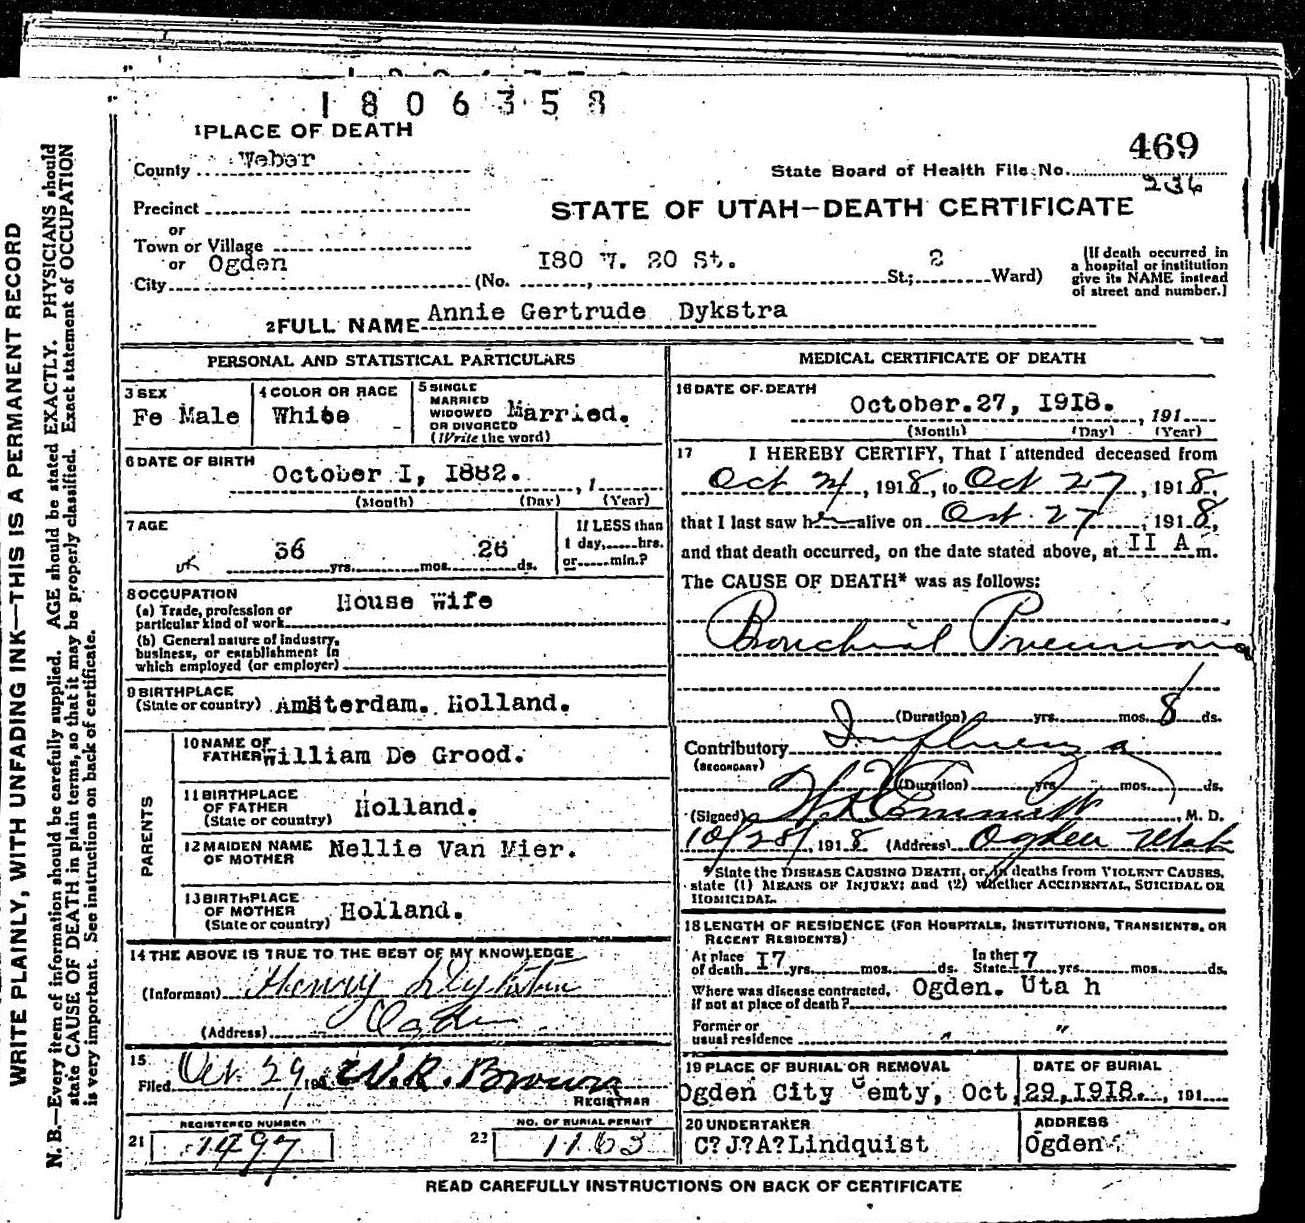 1806358
1 PLACE OF DEATH
469
County Weber
State Board of Health File No.
236
Precinct
STATE OF UTAH—DEATH CERTIFICATE
or
Town or Village
or Ogden I80 W. 20 St. 2
City (No. St.; Ward)
(If death occurred in
a hospital or institution
give its NAME instead
of street and number.)
2 FULL NAME Annie Gertrude Dykstra
PERSONAL AND STATISTICAL PARTICULARS
3 SEX
Fe Male
4 COLOR OR RACE
White
5 SINGLE
MARRIED
WIDOWED
OR DIVORCED
(Write the word)
Married.
6 DATE OF BIRTH
October I, I882. , 1
(Month) (Day) (Year)
7 AGE
36 yrs. mos. 26 ds.
If LESS than
1 day, hrs.
or min.?
8 OCCUPATION
(a) Trade, profession or
particular kind of work House Wife
(b) General nature of industry,
business, or establishment in
which employed (or employer)
9 BIRTHPLACE
(State or country) Amsterdam. Holland.
PARENTS
10 NAME OF
FATHER William De Grood.
11 BIRTHPLACE
OF FATHER
(State or country) Holland.
12 MAIDEN NAME
OF MOTHER Nellie Van Mier.
13 BIRTHPLACE
OF MOTHER
(State or country) Holland.
14 THE ABOVE IS TRUE TO THE BEST OF MY KNOWLEDGE
(Informant) Henry Dykstra
(Address) Ogden
15
Filed Oct. 29, 191 W. R. Brown
REGISTRAR
REGISTERED NUMBER
21 1497
NO. OF BURIAL PERMIT
22 1163
MEDICAL CERTIFICATE OF DEATH
16 DATE OF DEATH
October.27, I918. , 191
(Month) (Day) (Year)
17 I HEREBY CERTIFY, That I attended deceased from
Oct 24, 1918, to Oct 27, 1918,
that I last saw her alive on Oct. 27, 1918,
and that death occurred, on the date stated above, at II A m.
The CAUSE OF DEATH* was as follows:
Bronchial Pneumonia
(Duration) yrs. mos. 8 ds.
Contributory Influenza
(SECONDARY)
(Duration) yrs. mos. ds.
(Signed) Emmett, M. D.
10/28/, 1918 (Address) Ogden Utah
*State the DISEASE CAUSING DEATH, or, in deaths from VIOLENT CAUSES,
state (1) MEANS OF INJURY; and (2) whether ACCIDENTAL, SUICIDAL OR
HOMICIDAL.
18 LENGTH OF RESIDENCE (FOR HOSPITALS, INSTITUTIONS, TRANSIENTS, OR
RECENT RESIDENTS)
At place
of death I7 yrs. mos. ds.
In the
State I7 yrs. mos. ds.
Where was disease contracted,
if not at place of death? Ogden. Uta h
Former or
usual residence " "
19 PLACE OF BURIAL OR REMOVAL
Ogden City Cemty,
DATE OF BURIAL
Oct 29, I918. , 191
20 UNDERTAKER
C?J?A?Lindquist
ADDRESS
Ogden
READ CAREFULLY INSTRUCTIONS ON BACK OF CERTIFICATE
WRITE PLAINLY, WITH UNFADING INK—THIS IS A PERMANENT RECORD
N. B.—Every item of information should be carefully supplied. AGE should be stated EXACTLY. PHYSICIANS should
state CAUSE OF DEATH in plain terms, so that it may be properly classified. Exact statement of OCCUPATION
is very important. See instructions on back of certificate.